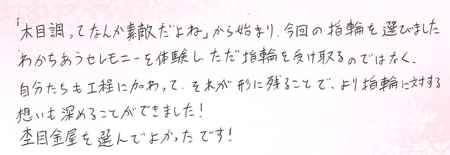 「木目調ってなんか素敵だよね」から始まり、今回の指輪を選びました
わかちあうセレモニーを体験し ただ指輪を受け取るのではなく、
自分たちも工程に加わって、それが形に残ることで、より指輪に対する
想いも深めることができました！
杢目金屋を選んでよかったです！